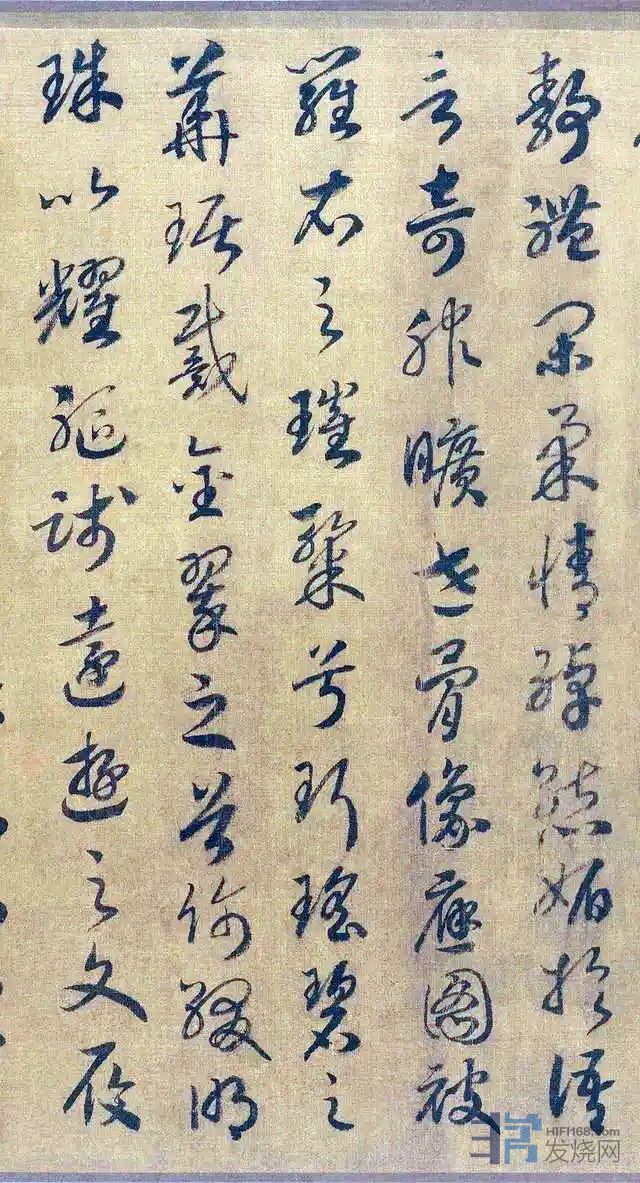 靜體閑柔情綽態媚於語
言奇服曠世骨像應圖被
羅衣之璀粲兮珥瑤碧之
華琚戴金翠之首飾綴明
珠以耀軀踐遠遊之文履
HIFI168.com
发烧网